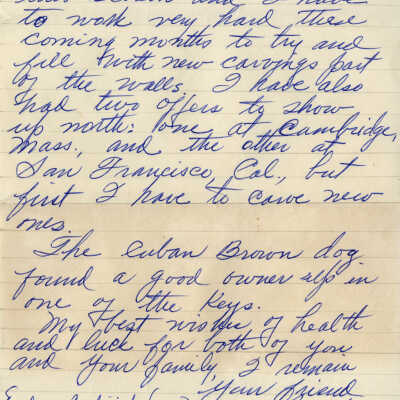 and I have
to work very hard these
coming months to try and
fill with new carvings part
of the walls. I have also
had two offers to show
up north: one at Cambridge,
Mass., and the other at
San Francisco, Cal., but
first I have to carve new
ones.
The Cuban Brown dog
found a good owner up in
one of the Keys.
My best wishes of health
and luck for both of you
and your family, I remain
Your friend